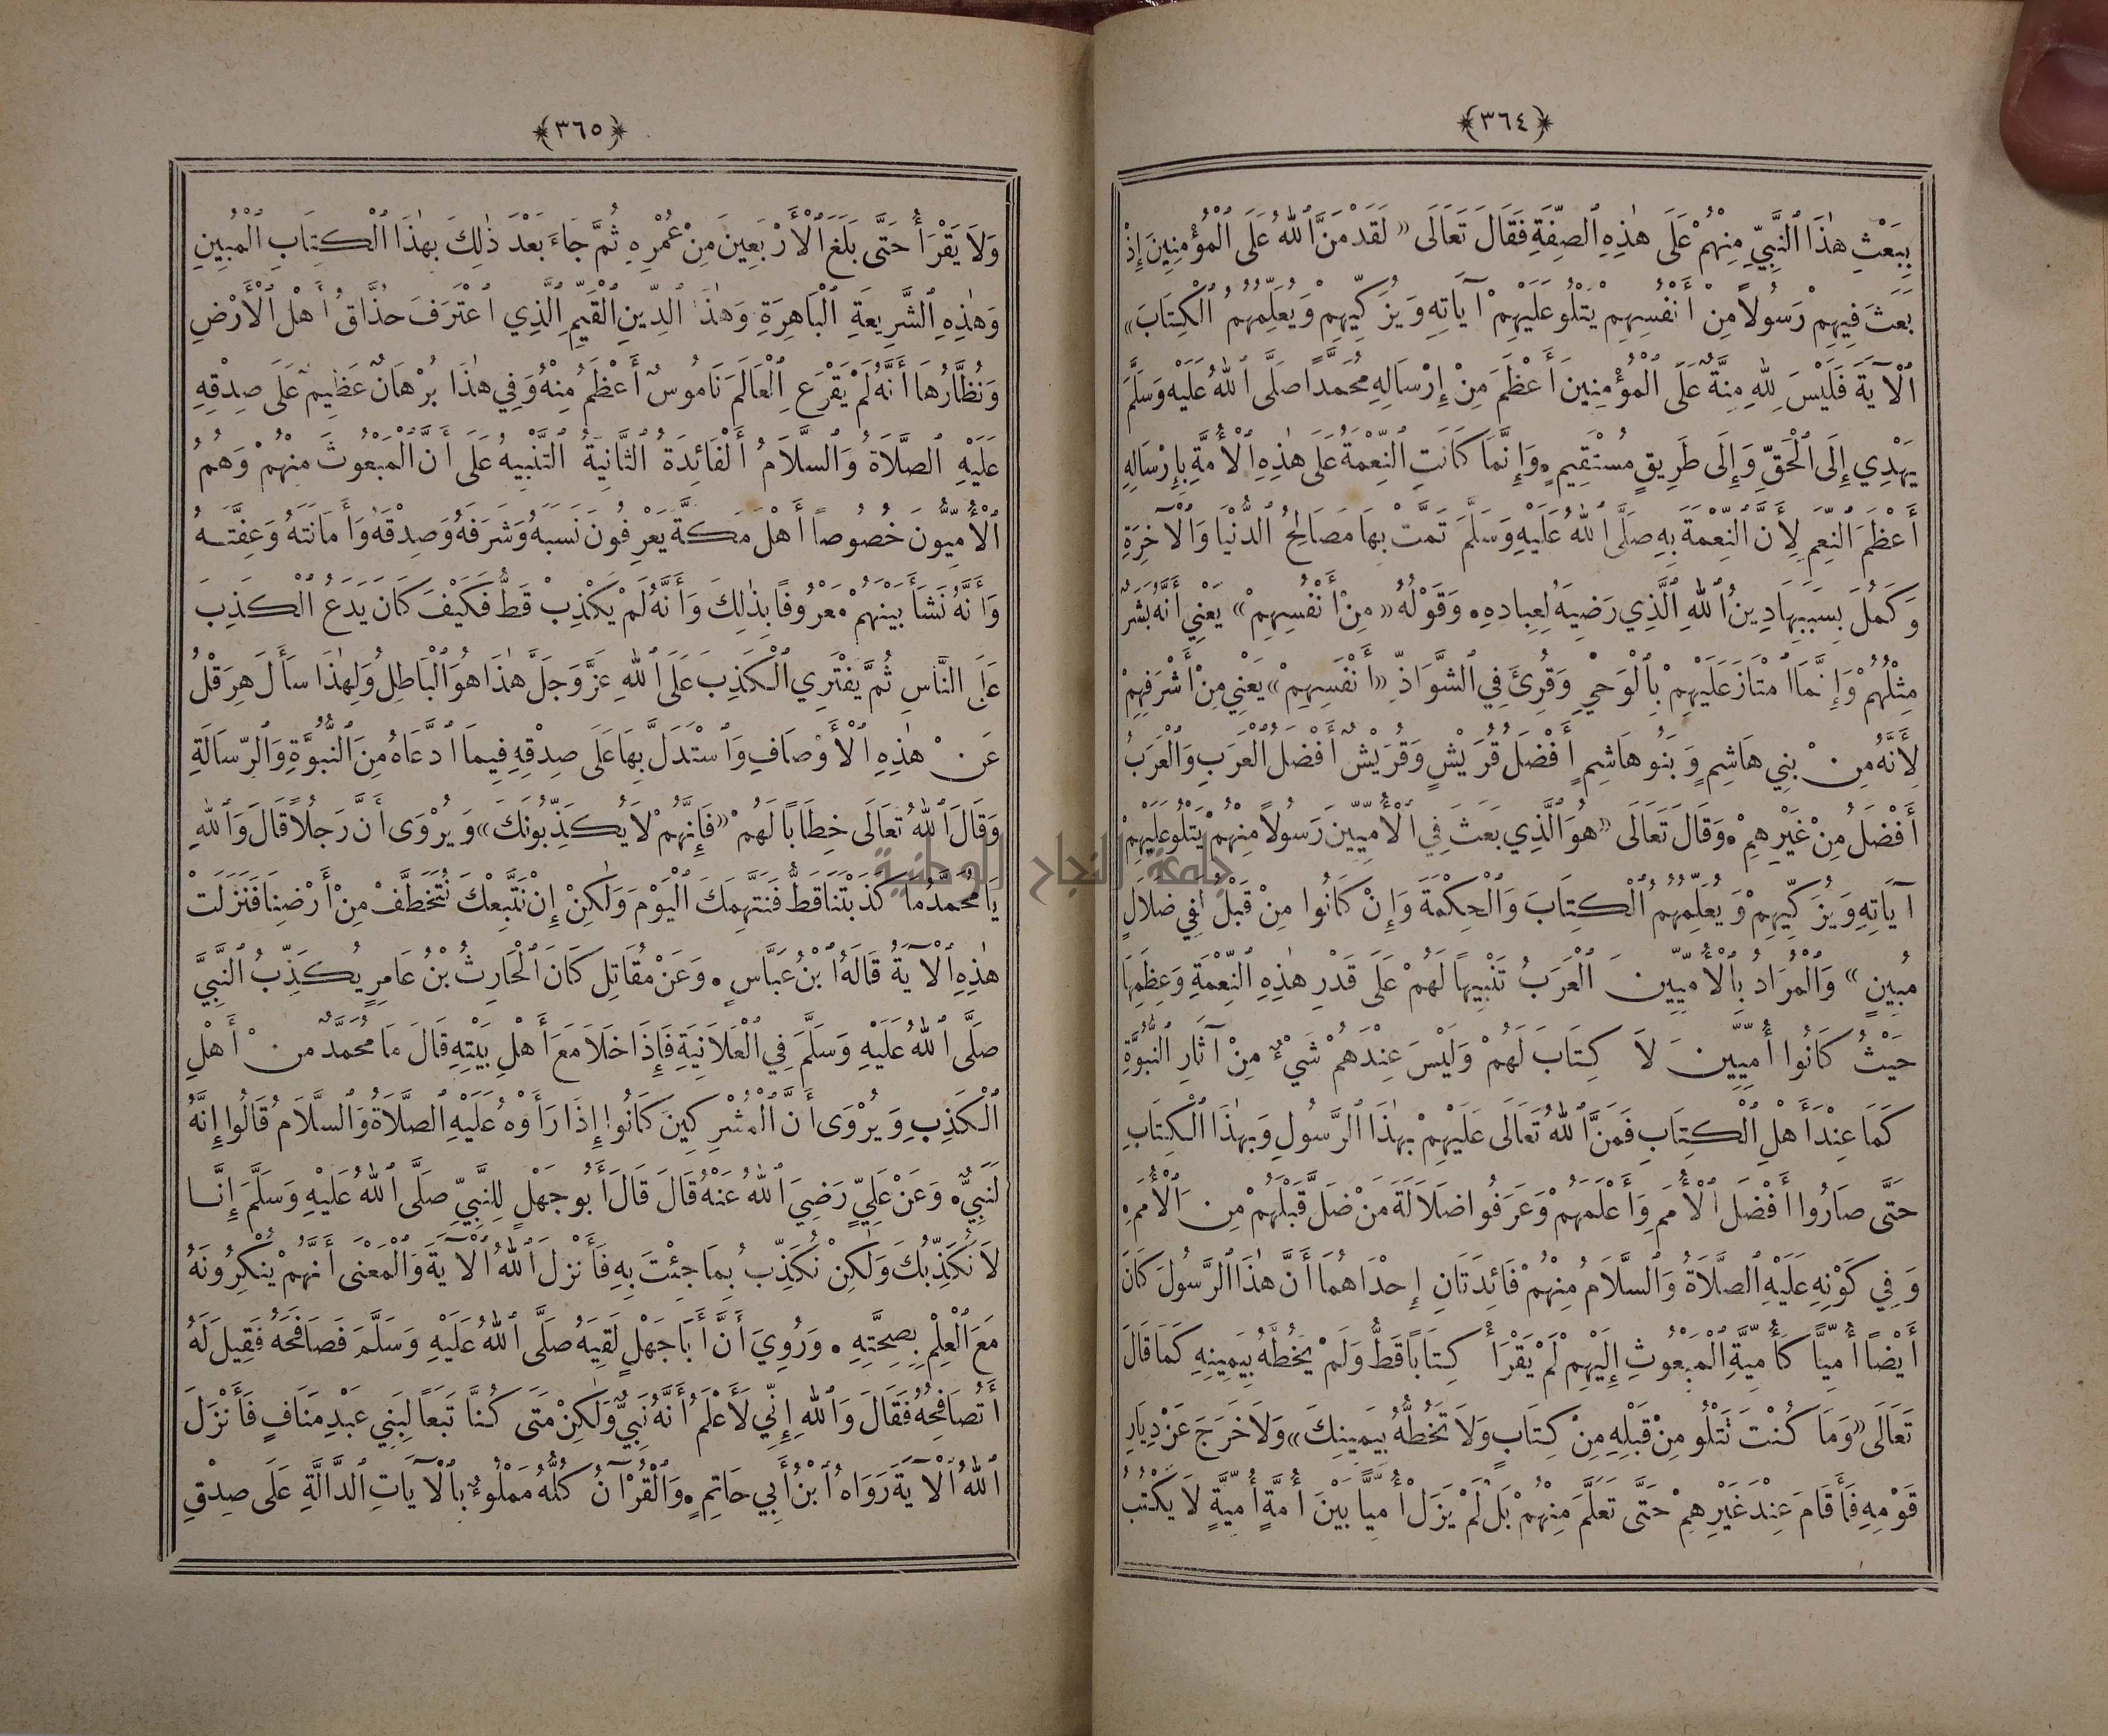 ﴿٣٦٤﴾
بِبَعْثِ هٰذَا ٱلنَّبِيِّ مِنْهُمْ عَلَى هٰذِهِ ٱلصِّفَةِ فَقَالَ تَعَالَى «لَقَدْ مَنَّ ٱللّٰهُ عَلَى ٱلْمُؤْمِنِينَ إِذْ
بَعَثَ فِيهِمْ رَسُولاً مِنْ أَنْفُسِهِمْ يَتْلُو عَلَيْهِمْ آيَاتِهِ وَيُزَكِّيهِمْ وَيُعَلِّمُهُمُ ٱلْكِتَابَ»
ٱلْآيَةَ فَلَيْسَ لِلّٰهِ مِنَّةٌ عَلَى ٱلْمُؤْمِنِينَ أَعْظَمَ مِنْ إِرْسَالِهِ مُحَمَّدًا صَلَّى ٱللّٰهُ عَلَيْهِ وَسَلَّمَ
يَهْدِي إِلَى ٱلْحَقِّ وَإِلَى طَرِيقٍ مُسْتَقِيمٍ. وَإِنَّمَا كَانَتِ ٱلنِّعْمَةُ عَلَى هٰذِهِ ٱلْأُمَّةِ بِإِرْسَالِهِ
أَعْظَمَ ٱلنِّعَمِ لِأَنَّ ٱلنِّعْمَةَ بِهِ صَلَّى ٱللّٰهُ عَلَيْهِ وَسَلَّمَ تَمَّتْ بِهَا مَصَالِحُ ٱلدُّنْيَا وَٱلْآخِرَةِ
وَكَمُلَ بِسَبَبِهَا دِينُ ٱللّٰهِ ٱلَّذِي رَضِيَهُ لِعِبَادِهِ. وَقَوْلُهُ «مِنْ أَنْفُسِهِمْ» يَعْنِي أَنَّهُ بَشَرٌ
مِثْلُهُمْ وَإِنَّمَا ٱمْتَازَ عَلَيْهِمْ بِٱلْوَحْيِ وَقُرِئَ فِي ٱلشَّوَاذِّ «أَنْفَسِهِمْ» يَعْنِي مِنْ أَشْرَفِهِمْ
لِأَنَّهُ مِنْ بَنِي هَاشِمٍ وَبَنُو هَاشِمٍ أَفْضَلُ قُرَيْشٍ وَقُرَيْشٌ أَفْضَلُ ٱلْعَرَبِ وَٱلْعَرَبُ
أَفْضَلُ مِنْ غَيْرِهِمْ. وَقَالَ تَعَالَى «هُوَ ٱلَّذِي بَعَثَ فِي ٱلْأُمِّيِّينَ رَسُولاً مِنْهُمْ يَتْلُو عَلَيْهِمْ
آيَاتِهِ وَيُزَكِّيهِمْ وَيُعَلِّمُهُمُ ٱلْكِتَابَ وَٱلْحِكْمَةَ وَإِنْ كَانُوا مِنْ قَبْلُ لَفِي ضَلَالٍ
مُبِينٍ» وَٱلْمُرَادُ بِٱلْأُمِّيِّينَ ٱلْعَرَبُ تَنْبِيهًا لَهُمْ عَلَى قَدْرِ هٰذِهِ ٱلنِّعْمَةِ وَعِظَمِهَا
حَيْثُ كَانُوا أُمِّيِّينَ لاَ كِتَابَ لَهُمْ وَلَيْسَ عِنْدَهُمْ شَيْءٌ مِنْ آثَارِ ٱلنُّبُوَّةِ
كَمَا عِنْدَ أَهْلِ ٱلْكِتَابِ فَمَنَّ ٱللّٰهُ تَعَالَى عَلَيْهِمْ بِهٰذَا ٱلرَّسُولِ وَبِهٰذَا ٱلْكِتَابِ
حَتَّى صَارُوا أَفْضَلَ ٱلْأُمَمِ وَأَعْلَمَهُمْ وَعَرَفُوا ضَلَالَةَ مَنْ ضَلَّ قَبْلَهُمْ مِنَ ٱلْأُمَمِ.
وَفِي كَوْنِهِ عَلَيْهِ ٱلصَّلَاةُ وَٱلسَّلَامُ مِنْهُمْ فَائِدَتَانِ إِحْدَاهُمَا أَنَّ هٰذَا ٱلرَّسُولَ كَانَ
أَيْضًا أُمِّيًّا كَأُمِّيَّةِ ٱلْمَبْعُوثِ إِلَيْهِمْ لَمْ يَقْرَأْ كِتَابًا قَطُّ وَلَمْ يَخُطَّهُ بِيَمِينِهِ كَمَا قَالَ
تَعَالَى «وَمَا كُنْتَ تَتْلُو مِنْ قَبْلِهِ مِنْ كِتَابٍ وَلَا تَخُطُّهُ بِيَمِينِكَ» وَلَا خَرَجَ عَنْ دِيَارِ
قَوْمِهِ فَأَقَامَ عِنْدَ غَيْرِهِمْ حَتَّى تَعَلَّمَ مِنْهُمْ بَلْ لَمْ يَزَلْ أُمِّيًّا بَيْنَ أُمَّةٍ أُمِّيَّةٍ لَا يَكْتُبُ
﴿٣٦٥﴾
وَلَا يَقْرَأُ حَتَّى بَلَغَ ٱلْأَرْبَعِينَ مِنْ عُمْرِهِ ثُمَّ جَاءَ بَعْدَ ذٰلِكَ بِهٰذَا ٱلْكِتَابِ ٱلْمُبِينِ
وَهٰذِهِ ٱلشَّرِيعَةِ ٱلْبَاهِرَةِ وَهٰذَا ٱلدِّينِ ٱلْقَيِّمِ ٱلَّذِي ٱعْتَرَفَ حُذَّاقُ أَهْلِ ٱلْأَرْضِ
وَنُظَّارُهَا أَنَّهُ لَمْ يَقْرَعِ ٱلْعَالَمَ نَامُوسٌ أَعْظَمُ مِنْهُ وَفِي هٰذَا بُرْهَانٌ عَظِيمٌ عَلَى صِدْقِهِ
عَلَيْهِ ٱلصَّلَاةُ وَٱلسَّلَامُ أَلْفَائِدَةُ ٱلثَّانِيَةُ ٱلتَّنْبِيهُ عَلَى أَنَّ ٱلْمَبْعُوثَ مِنْهُمْ وَهُمُ
ٱلْأُمِّيُّونَ خُصُوصًا أَهْلَ مَكَّةَ يَعْرِفُونَ نَسَبَهُ وَشَرَفَهُ وَصِدْقَهُ وَأَمَانَتَهُ وَعِفَّتَهُ
وَأَنَّهُ نَشَأَ بَيْنَهُمْ مَعْرُوفًا بِذٰلِكَ وَأَنَّهُ لَمْ يَكْذِبْ قَطُّ فَكَيْفَ كَانَ يَدَعُ ٱلْكَذِبَ
عَلَى ٱلنَّاسِ ثُمَّ يَفْتَرِي ٱلْكَذِبَ عَلَى ٱللّٰهِ عَزَّ وَجَلَّ هٰذَا هُوَ ٱلْبَاطِلُ وَلِهٰذَا سَأَلَ هِرَقْلُ
عَنْ هٰذِهِ ٱلْأَوْصَافِ وَٱسْتَدَلَّ بِهَا عَلَى صِدْقِهِ فِيمَا ٱدَّعَاهُ مِنَ ٱلنُّبُوَّةِ وَٱلرِّسَالَةِ
وَقَالَ ٱللّٰهُ تَعَالَى خِطَابًا لَهُمْ «فَإِنَّهُمْ لَا يُكَذِّبُونَكَ» وَيُرْوَى أَنَّ رَجُلاً قَالَ وَٱللّٰهِ
يَا مُحَمَّدُ مَا كَذَبْتَنَا قَطُّ فَنَتَّهِمَكَ ٱلْيَوْمَ وَلٰكِنْ إِنْ نَتَّبِعْكَ نُتَخَطَّفْ مِنْ أَرْضِنَا فَنَزَلَتْ
هٰذِهِ ٱلْآيَةُ قَالَهُ ٱبْنُ عَبَّاسٍ. وَعَنْ مُقَاتِلٍ كَانَ ٱلْحَارِثُ بْنُ عَامِرٍ يُكَذِّبُ ٱلنَّبِيَّ
صَلَّى ٱللّٰهُ عَلَيْهِ وَسَلَّمَ فِي ٱلْعَلَانِيَةِ فَإِذَا خَلَا مَعَ أَهْلِ بَيْتِهِ قَالَ مَا مُحَمَّدٌ مِنْ أَهْلِ
ٱلْكَذِبِ وَيُرْوَى أَنَّ ٱلْمُشْرِكِينَ كَانُوا إِذَا رَأَوْهُ عَلَيْهِ ٱلصَّلَاةُ وَٱلسَّلَامُ قَالُوا إِنَّهُ
لَنَبِيٌّ. وَعَنْ عَلِيٍّ رَضِيَ ٱللّٰهُ عَنْهُ قَالَ قَالَ أَبُو جَهْلٍ لِلنَّبِيِّ صَلَّى ٱللّٰهُ عَلَيْهِ وَسَلَّمَ إِنَّا
لَا نُكَذِّبُكَ وَلٰكِنْ نُكَذِّبُ بِمَا جِئْتَ بِهِ فَأَنْزَلَ ٱللّٰهُ ٱلْآيَةَ وَٱلْمَعْنَى أَنَّهُمْ يُنْكِرُونَهُ
مَعَ ٱلْعِلْمِ بِصِحَّتِهِ. وَرُوِيَ أَنَّ أَبَا جَهْلٍ لَقِيَهُ صَلَّى ٱللّٰهُ عَلَيْهِ وَسَلَّمَ فَصَافَحَهُ فَقِيلَ لَهُ
أَتُصَافِحُهُ فَقَالَ وَٱللّٰهِ إِنِّي لَأَعْلَمُ أَنَّهُ نَبِيٌّ وَلٰكِنْ مَتَى كُنَّا تَبَعًا لِبَنِي عَبْدِ مَنَافٍ فَأَنْزَلَ
ٱللّٰهُ ٱلْآيَةَ رَوَاهُ ٱبْنُ أَبِي حَاتِمٍ. وَٱلْقُرْآنُ كُلُّهُ مَمْلُوءٌ بِٱلْآيَاتِ ٱلدَّالَّةِ عَلَى صِدْقِ
جامعة النجاح الوطنية